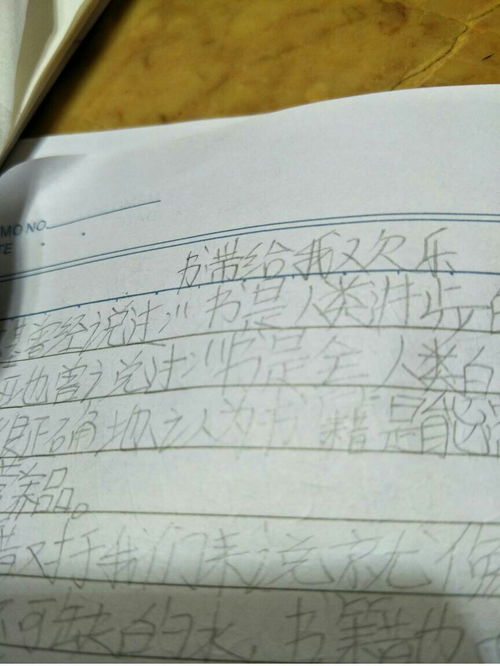 MO NO.
TE
书带给我欢乐
曾经说过:"书是人类进步的
也曾说过:"书是全人类的
正确地认为书籍是能
养品。
对于我们来说就像
不可缺的水,书籍也